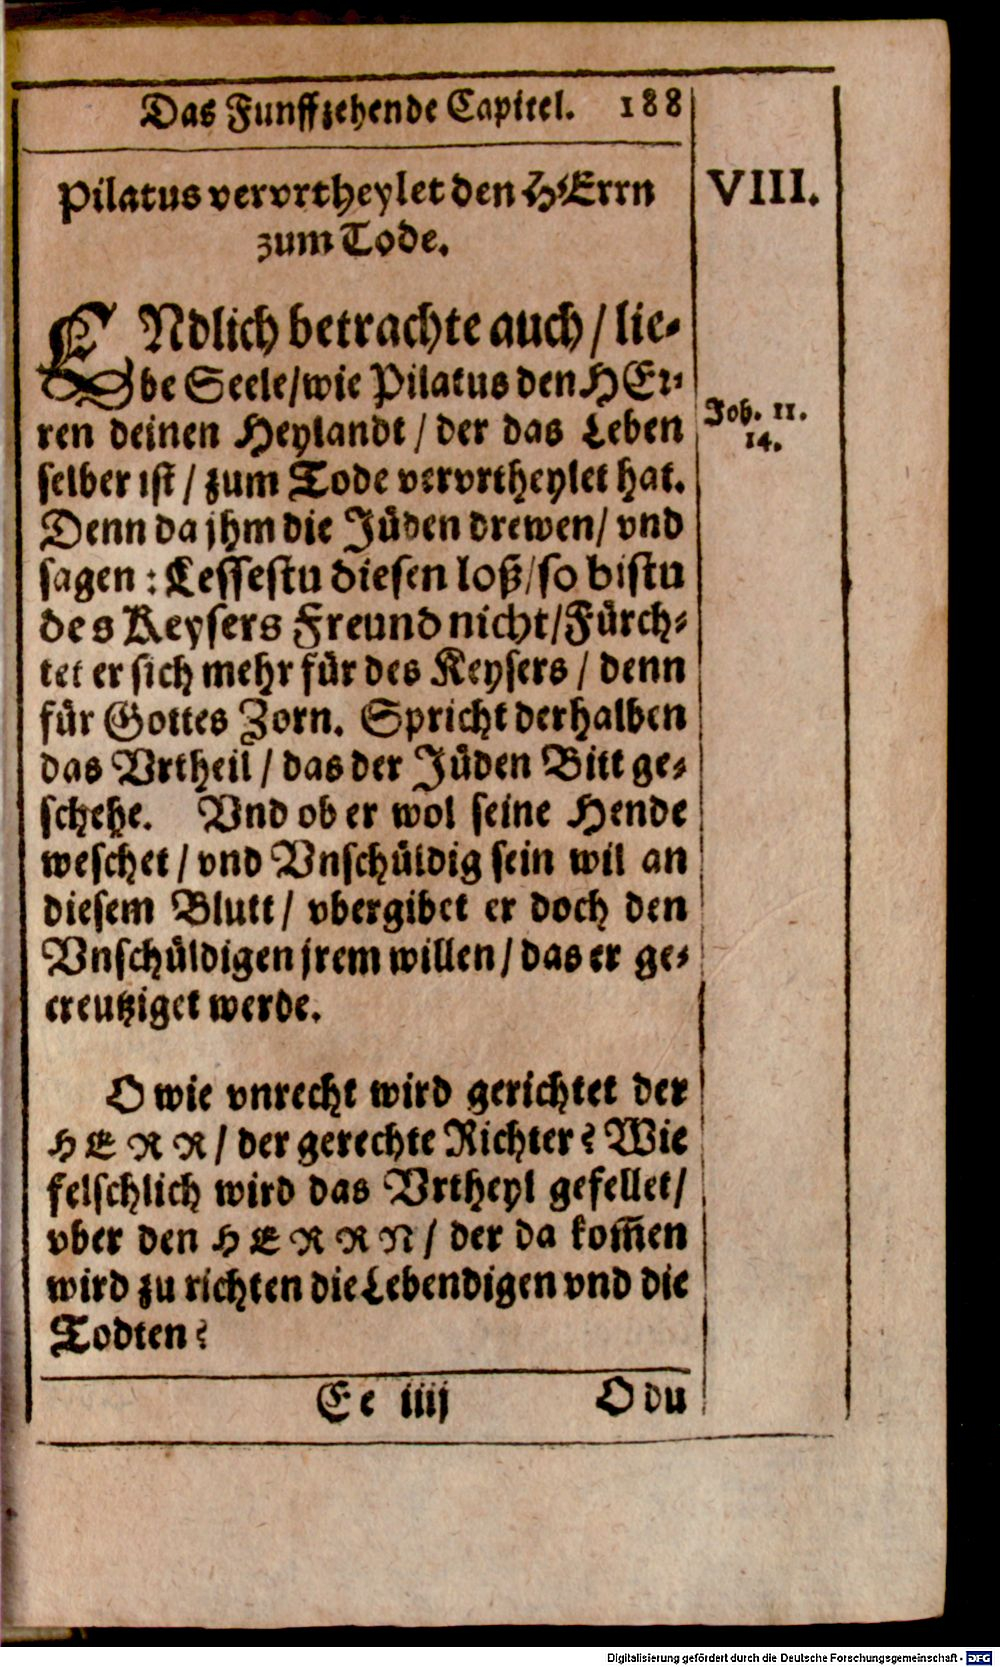 Das Funffzehende Capitel. 188
Pilatus vervrtheylet den HErrn
zum Tode.
VIII.
ENdlich betrachte auch / lie-
be Seele/wie Pilatus den HEr-
ren deinen Heylandt / der das Leben
selber ist / zum Tode vervrtheylet hat.
Joh. 11.
14.
Denn da jhm die Jüden drewen/ vnd
sagen : Lessestu diesen loß/so bistu
des Keysers Freund nicht/Fürch-
tet er sich mehr für des Keysers / denn
für Gottes Zorn. Spricht derhalben
das Vrtheil / das der Jüden Bitt ge-
schehe. Vnd ob er wol seine Hende
weschet / vnd Vnschüldig sein wil an
diesem Blutt / vbergibet er doch den
Vnschüldigen jrem willen / das er ge-
creutziget werde.
O wie vnrecht wird gerichtet der
HERR / der gerechte Richter? Wie
felschlich wird das Vrtheyl gefellet/
vber den HERRN / der da kom̄en
wird zu richten die Lebendigen vnd die
Todten?
Ee iiij O du
Digitalisierung gefördert durch die Deutsche Forschungsgemeinschaft - DFG